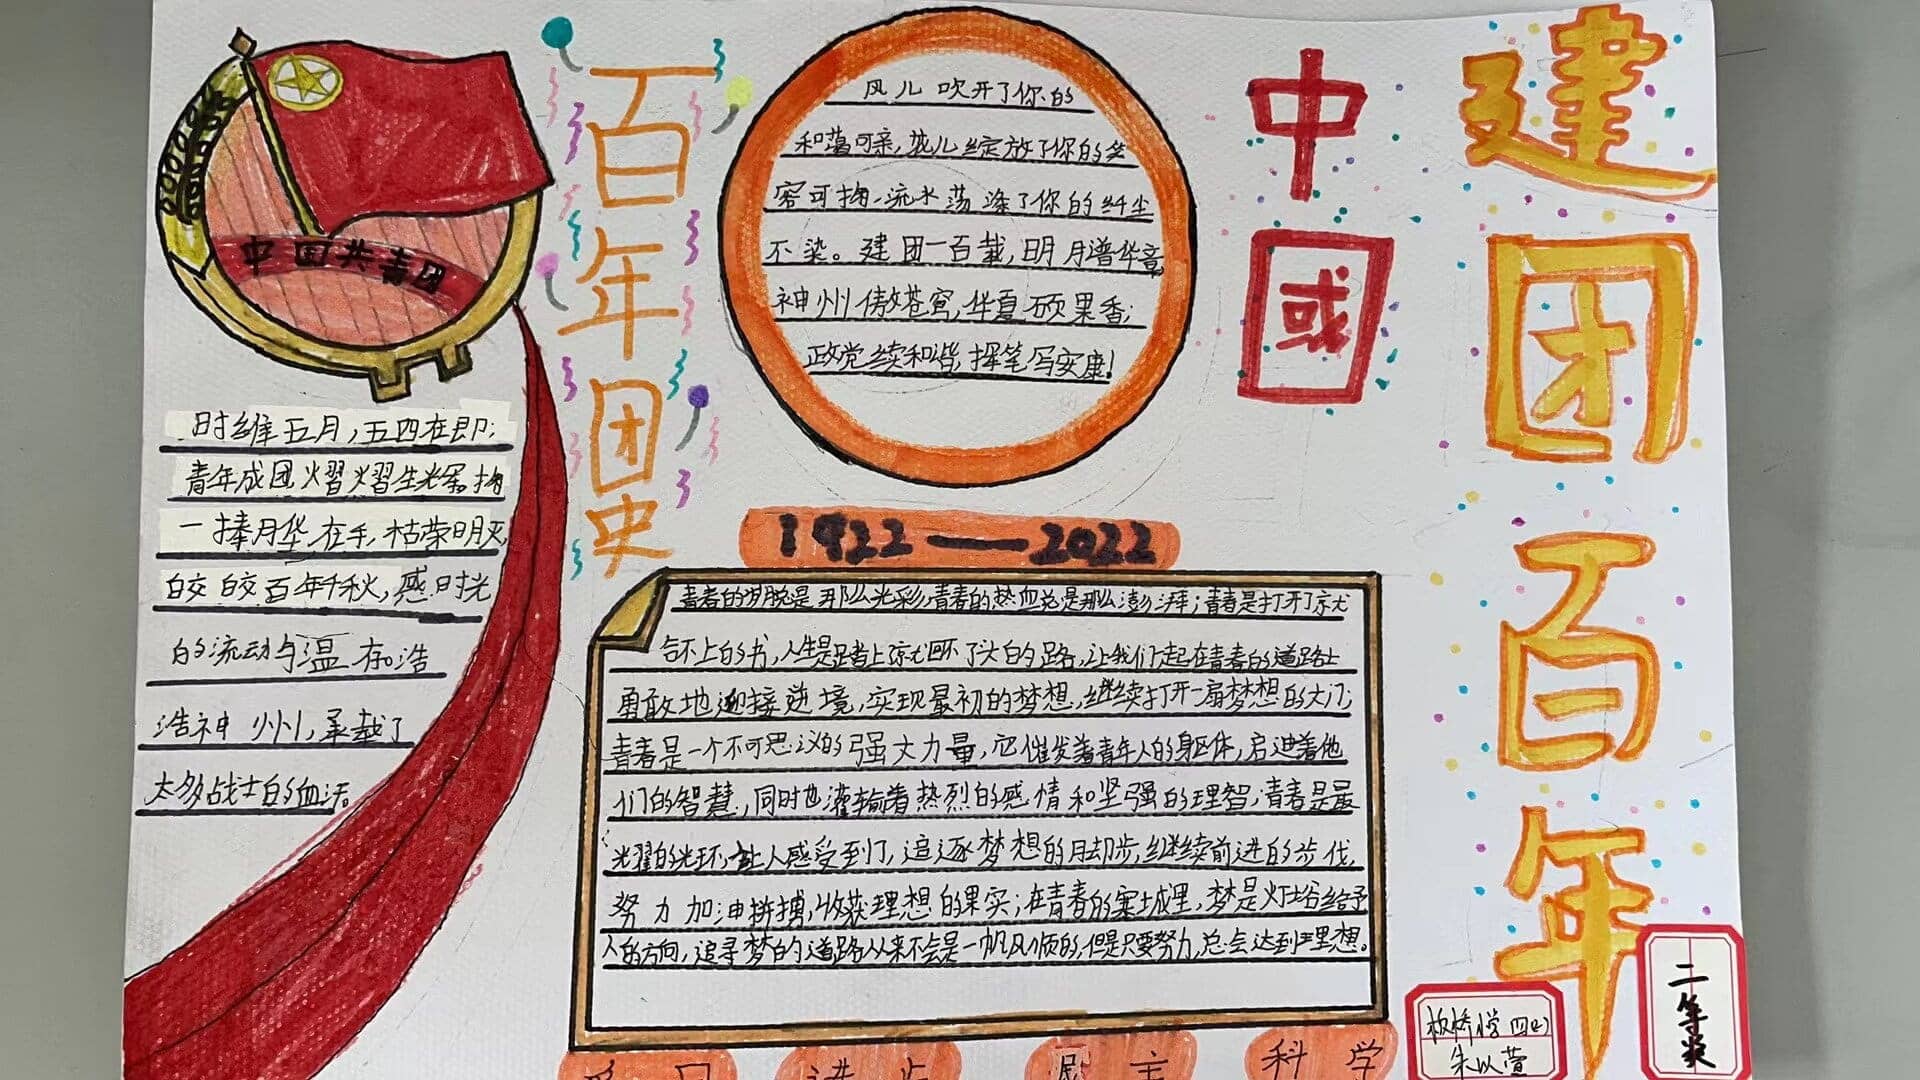 建团百年
中国
百年团史
中国共青团
风儿吹开了你的
和蔼可亲,花儿绽放了你的笑
容可掬,流水荡涤了你的纤尘
不染。建团一百载,明月谱华章
神州傲苍穹,华夏硕果香;
政党续和谐,挥笔写安康!
1922——2022
时维五月,五四在即;
青年成团,熠熠生光军,掬
一捧月华在手,枯荣明灭,
皎皎百年千秋,感时光
的流动与温存。浩
浩神州,承载了
太多战士的血汗。
青春的岁月总是那么光彩,青春的热血总是那么澎湃;青春是打开了就
合不上的书,人生是踏上了就回不了头的路,让我们一起在青春的道路上
勇敢地迎接逆境,实现最初的梦想,继续打开一扇梦想的大门;
青春是一个不可思议的强大力量,它催发着青年人的身躯体,启迪着他
们的智慧,同时也灌输着热烈的感情和坚强的理智;青春是最
光耀的光环,让人感受到了,追逐梦想的脚步,继续前进的步伐,
努力加油拼搏,收获理想的果实;在青春的塞城里,梦是灯塔给予
人的方向,追寻梦的道路从来不会是一帆风顺的,但是只要努力,总会达到理想。
爱国 进步 民主 科学
板桥小学 四(2)
朱以萱
二等奖